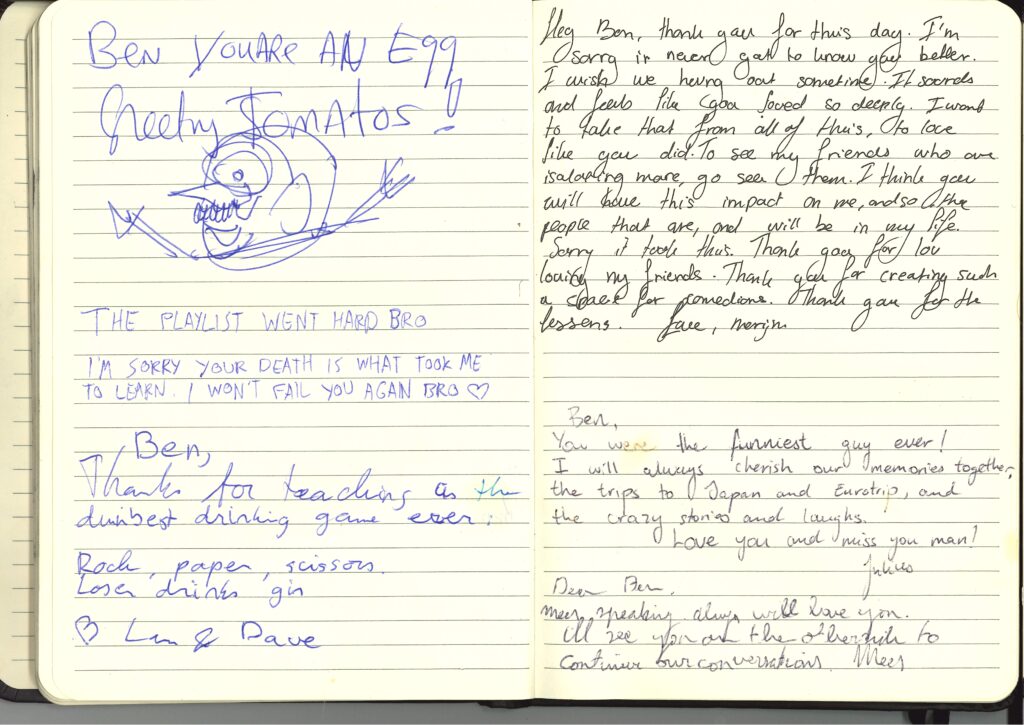 BEN YOUARE AN Egg
Greetny TOMATOS!
THE PLAYLIST WENT HARD BRO
I'M SORRY YOUR DEATH IS WHAT TOOK ME
TO LEARN. I WON'T FAIL YOU AGAIN BRO ♡
Ben,
Thanks for teaching us the
dumbest drinking game ever:
Rock, paper, scissors.
Loser drinks gin
♡ & Dave
Hey Ben, thank you for this day. I'm
sorry ir never got to know you better.
I wish we hung out sometime. It sounds
and feels like you loved so deeply. I want
to take that from all of this, to love
like you did. To see my friends who are
isalowing more, go see them. I think you
will have this impact on me, and so the
people that are, and will be in my life.
Sorry it took this. Thank you for lov
loving my friends. Thank you for creating such
a space for comedians. Thank you for the
lessens. Love,
Ben,
You were the funniest guy ever!
I will always cherish our memories together,
the trips to Japan and Eurotrip, and
the crazy stories and laughs.
Love you and miss you man!
Dear Ben,
mees speaking always will love you.
ill see you on the to
continue our conversations. Mees